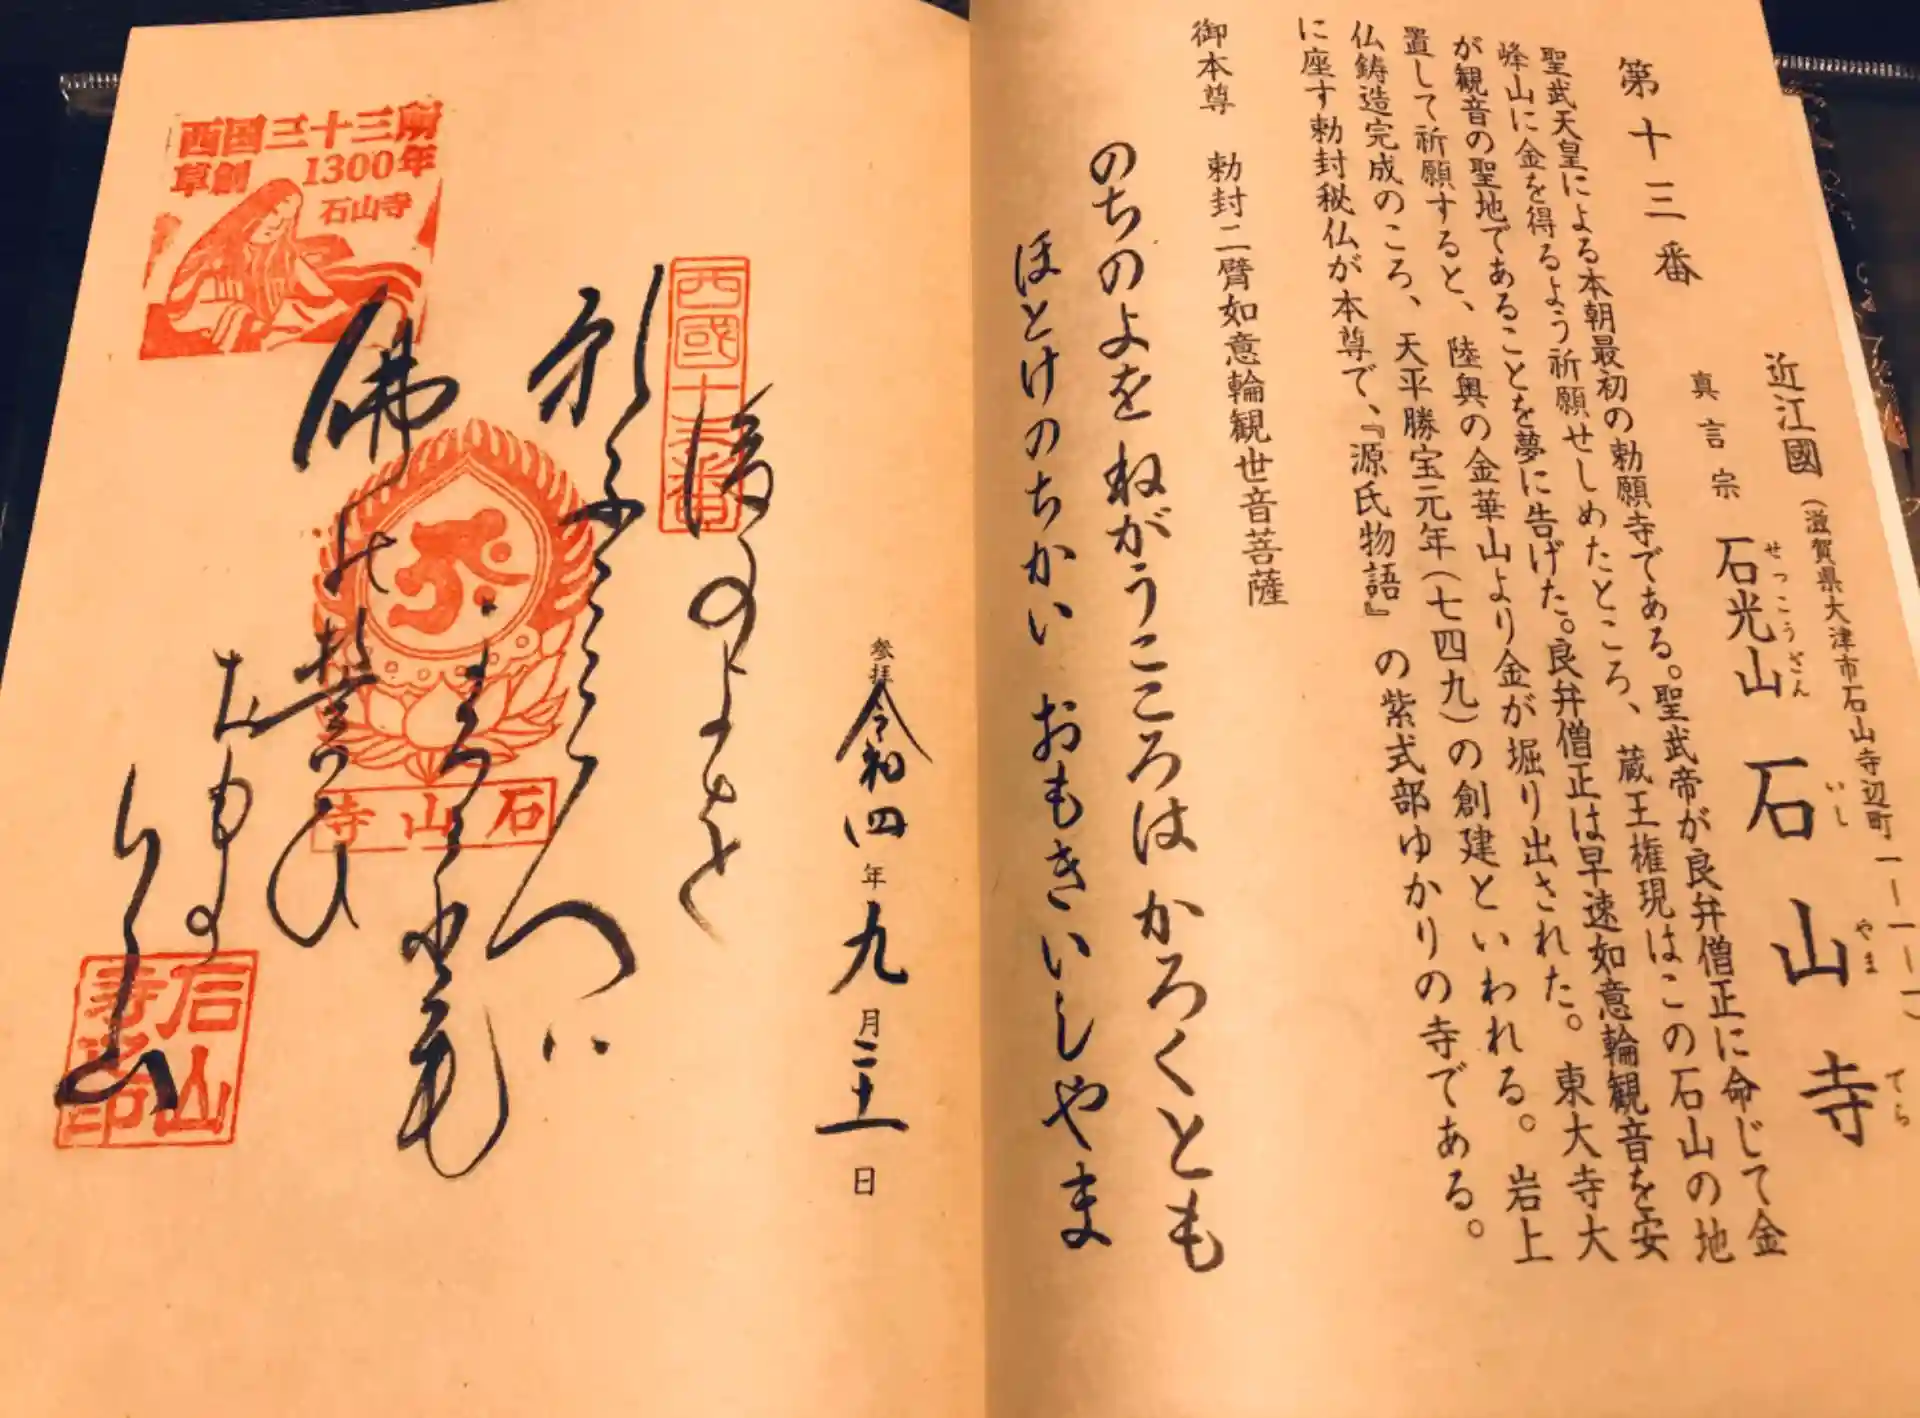 第十三番
近江國（滋賀県大津市石山寺辺町一ー一ー一）
真言宗 石光山 石山寺
せっこうざん いしやまでら
聖武天皇による本朝最初の勅願寺である。聖武帝が良弁僧正に命じて金
峰山に金を得るよう祈願せしめたところ、蔵王権現はこの石山の地
が観音の聖地であることを夢に告げた。良弁僧正は早速如意輪観音を安
置して祈願すると、陸奥の金華山より金が堀り出された。東大寺大
仏鋳造完成のころ、天平勝宝元年（七四九）の創建といわれる。岩上
に座す勅封秘仏が本尊で、『源氏物語』の紫式部ゆかりの寺である。
御本尊 勅封二臂如意輪観世音菩薩
のちのよを ねがうこころは かろくとも
ほとけのちかい おもきいしやま
参拝 令和四年九月二十一日
西國十三番
後のよを
佛の誓ひ
おもき
いし山
西国三十三所
草創 1300年
石山寺
石山寺
石山寺印